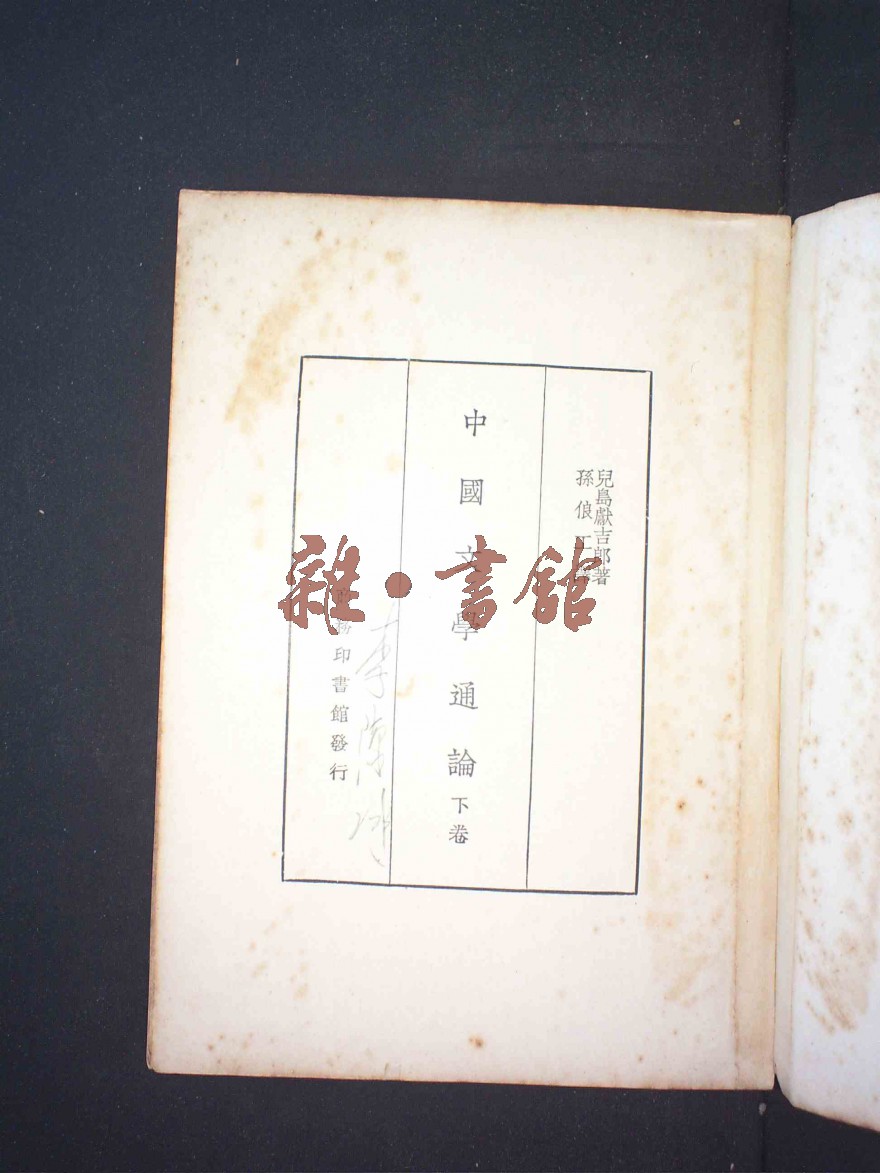 兒島獻吉郎著
孫俍工譯
中國文學通論下卷
商務印書館發行
雜・書館